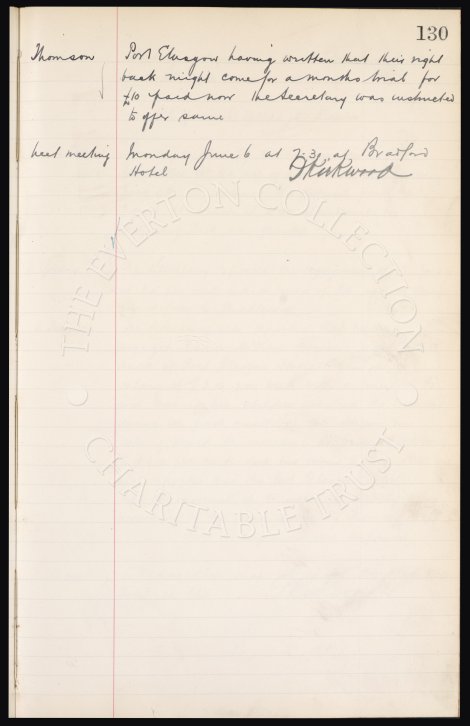 130
Thomson Port Glasgow having written that their right
back might come for a months trial for
£10 paid now the Secretary was instructed
to offer same
next meeting Monday June 6 at 7-30 at Bradford
Hotel DKirkwood
THE EVERTON COLLECTION
CHARITABLE TRUST